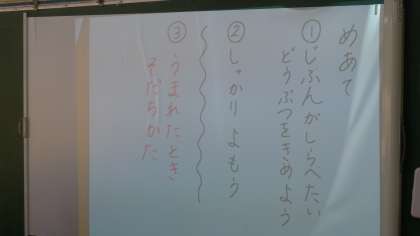 めあて
①じぶんがしらべたい
どうぶつをきめよう
②しっかりよもう
③うまれたとき
そだちかた